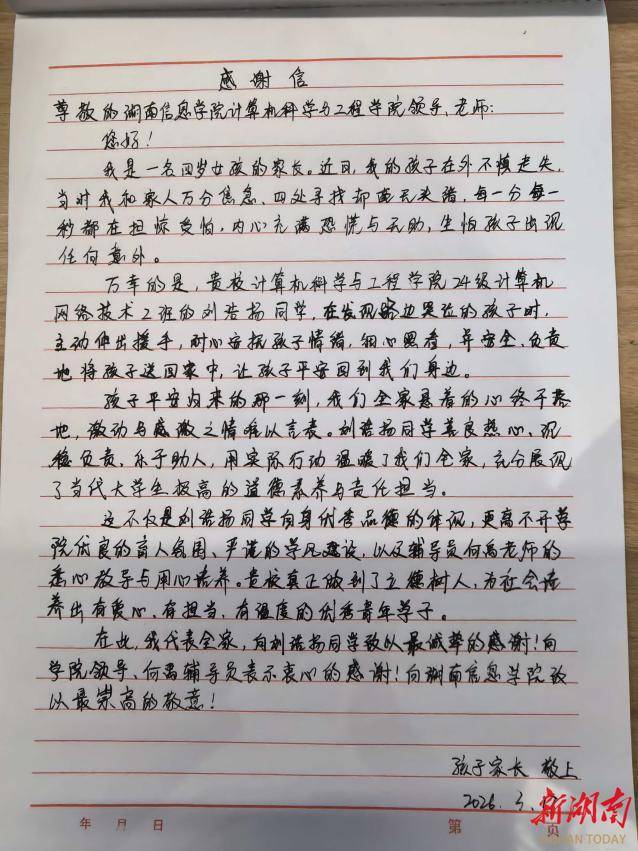 感谢信
尊敬的湖南信息学院计算机科学与工程学院领导、老师:
您好!
我是一名四岁女孩的家长。近日,我的孩子在外不慎走失,
当时我和家人万分焦急、四处寻找却毫无头绪,每一分每一
秒都在担惊受怕,内心充满恐慌与无助,生怕孩子出现
任何意外。
万幸的是,贵校计算机科学与工程学院24级计算机
网络技术2班的刘浩扬同学,在发现路边哭泣的孩子时,
主动伸出援手,耐心安抚孩子情绪,细心照看,并安全、负责
地将孩子送回家中,让孩子平安回到我们身边。
孩子平安归来的那一刻,我们全家悬着的心终于落
地,激动与感激之情难以言表。刘浩扬同学善良热心、沉
稳负责、乐于助人,用实际行动温暖了我们全家,充分展现
了当代大学生极高的道德素养与责任担当。
这不仅是刘浩扬同学自身优秀品德的体现,更离不开学
院优良的育人氛围、严谨的学风建设,以及辅导员何禹老师的
悉心教导与用心培养。贵校真正做到了立德树人,为社会培
养出有爱心、有担当、有温度的优秀青年学子。
在此,我代表全家,向刘浩扬同学致以最诚挚的感谢!向
学院领导、何禹辅导员表示衷心的感谢!向湖南信息学院致
以最崇高的敬意!
孩子家长 敬上
2026.3.
年 月 日
第 页
新湖南
HUNAN TODAY